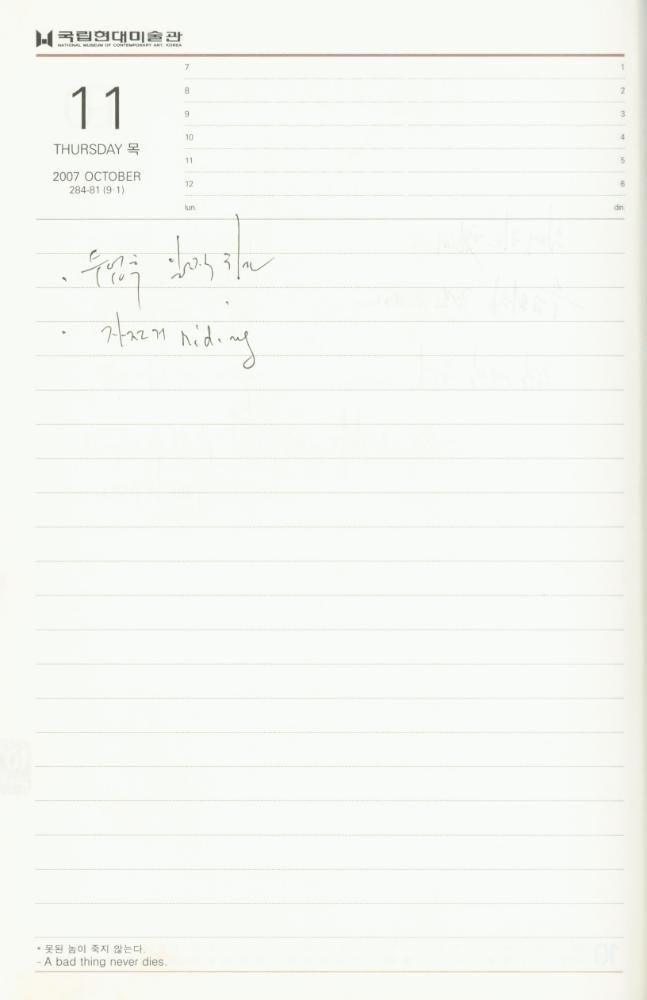 국립현대미술관
NATIONAL MUSEUM OF CONTEMPORARY ART, KOREA
11
THURSDAY 목
2007 OCTOBER
284-81 (9·1)
7 1
8 2
9 3
10 4
11 5
12 6
lun. din.
· 자전거 riding
* 못된 놈이 죽지 않는다.
- A bad thing never dies.